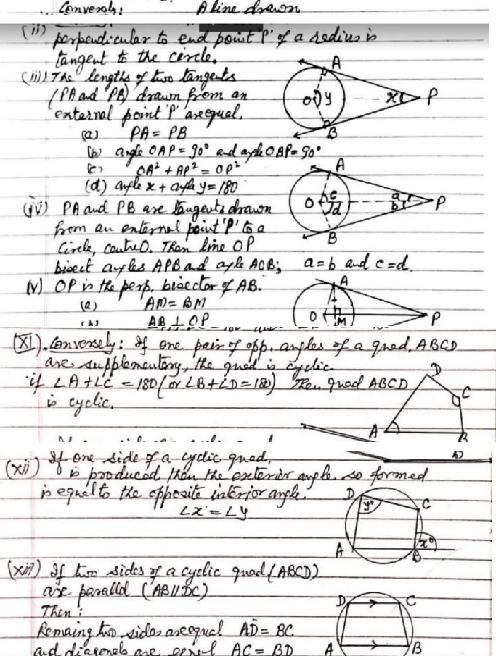 Conversely: A line drawn
(ii) perpendicular to end point 'P' of a radius is
tangent to the circle.
(iii) The lengths of two tangents
(PA and PB) drawn from an
external point 'P' are equal,
(a) PA = PB
(b) angle OAP = 90° and angle OBP = 90°
(c) OA² + AP² = OP²
(d) angle x + angle y = 180
A
O
y
x
P
B
(iv) PA and PB are tangents drawn
from an external point 'P' to a
Circle, centre O. Then line OP
bisect angles APB and angle AOB; a = b and c = d.
A
O
c
d
a
b
P
B
(v) OP is the perp. bisector of AB.
(a) AM = BM
AB ⊥ OP
A
O
M
P
(XI). Conversely: If one pair of opp. angles of a quad. ABCD
are supplementary, the quad is cyclic
if ∠A + ∠C = 180 (or ∠B + ∠D = 180) Then quad ABCD
is cyclic.
D
C
A
B
(xii) If one side of a cyclic quad.
is produced then the exterior angle so formed
is equal to the opposite interior angle.
∠x = ∠y
D
y°
C
A
B
x°
(xiii) If two sides of a cyclic quad (ABCD)
are parallel (AB||DC)
Then:
Remaing two sides are equal AD = BC
and diagonals are equal AC = BD
D
C
A
B